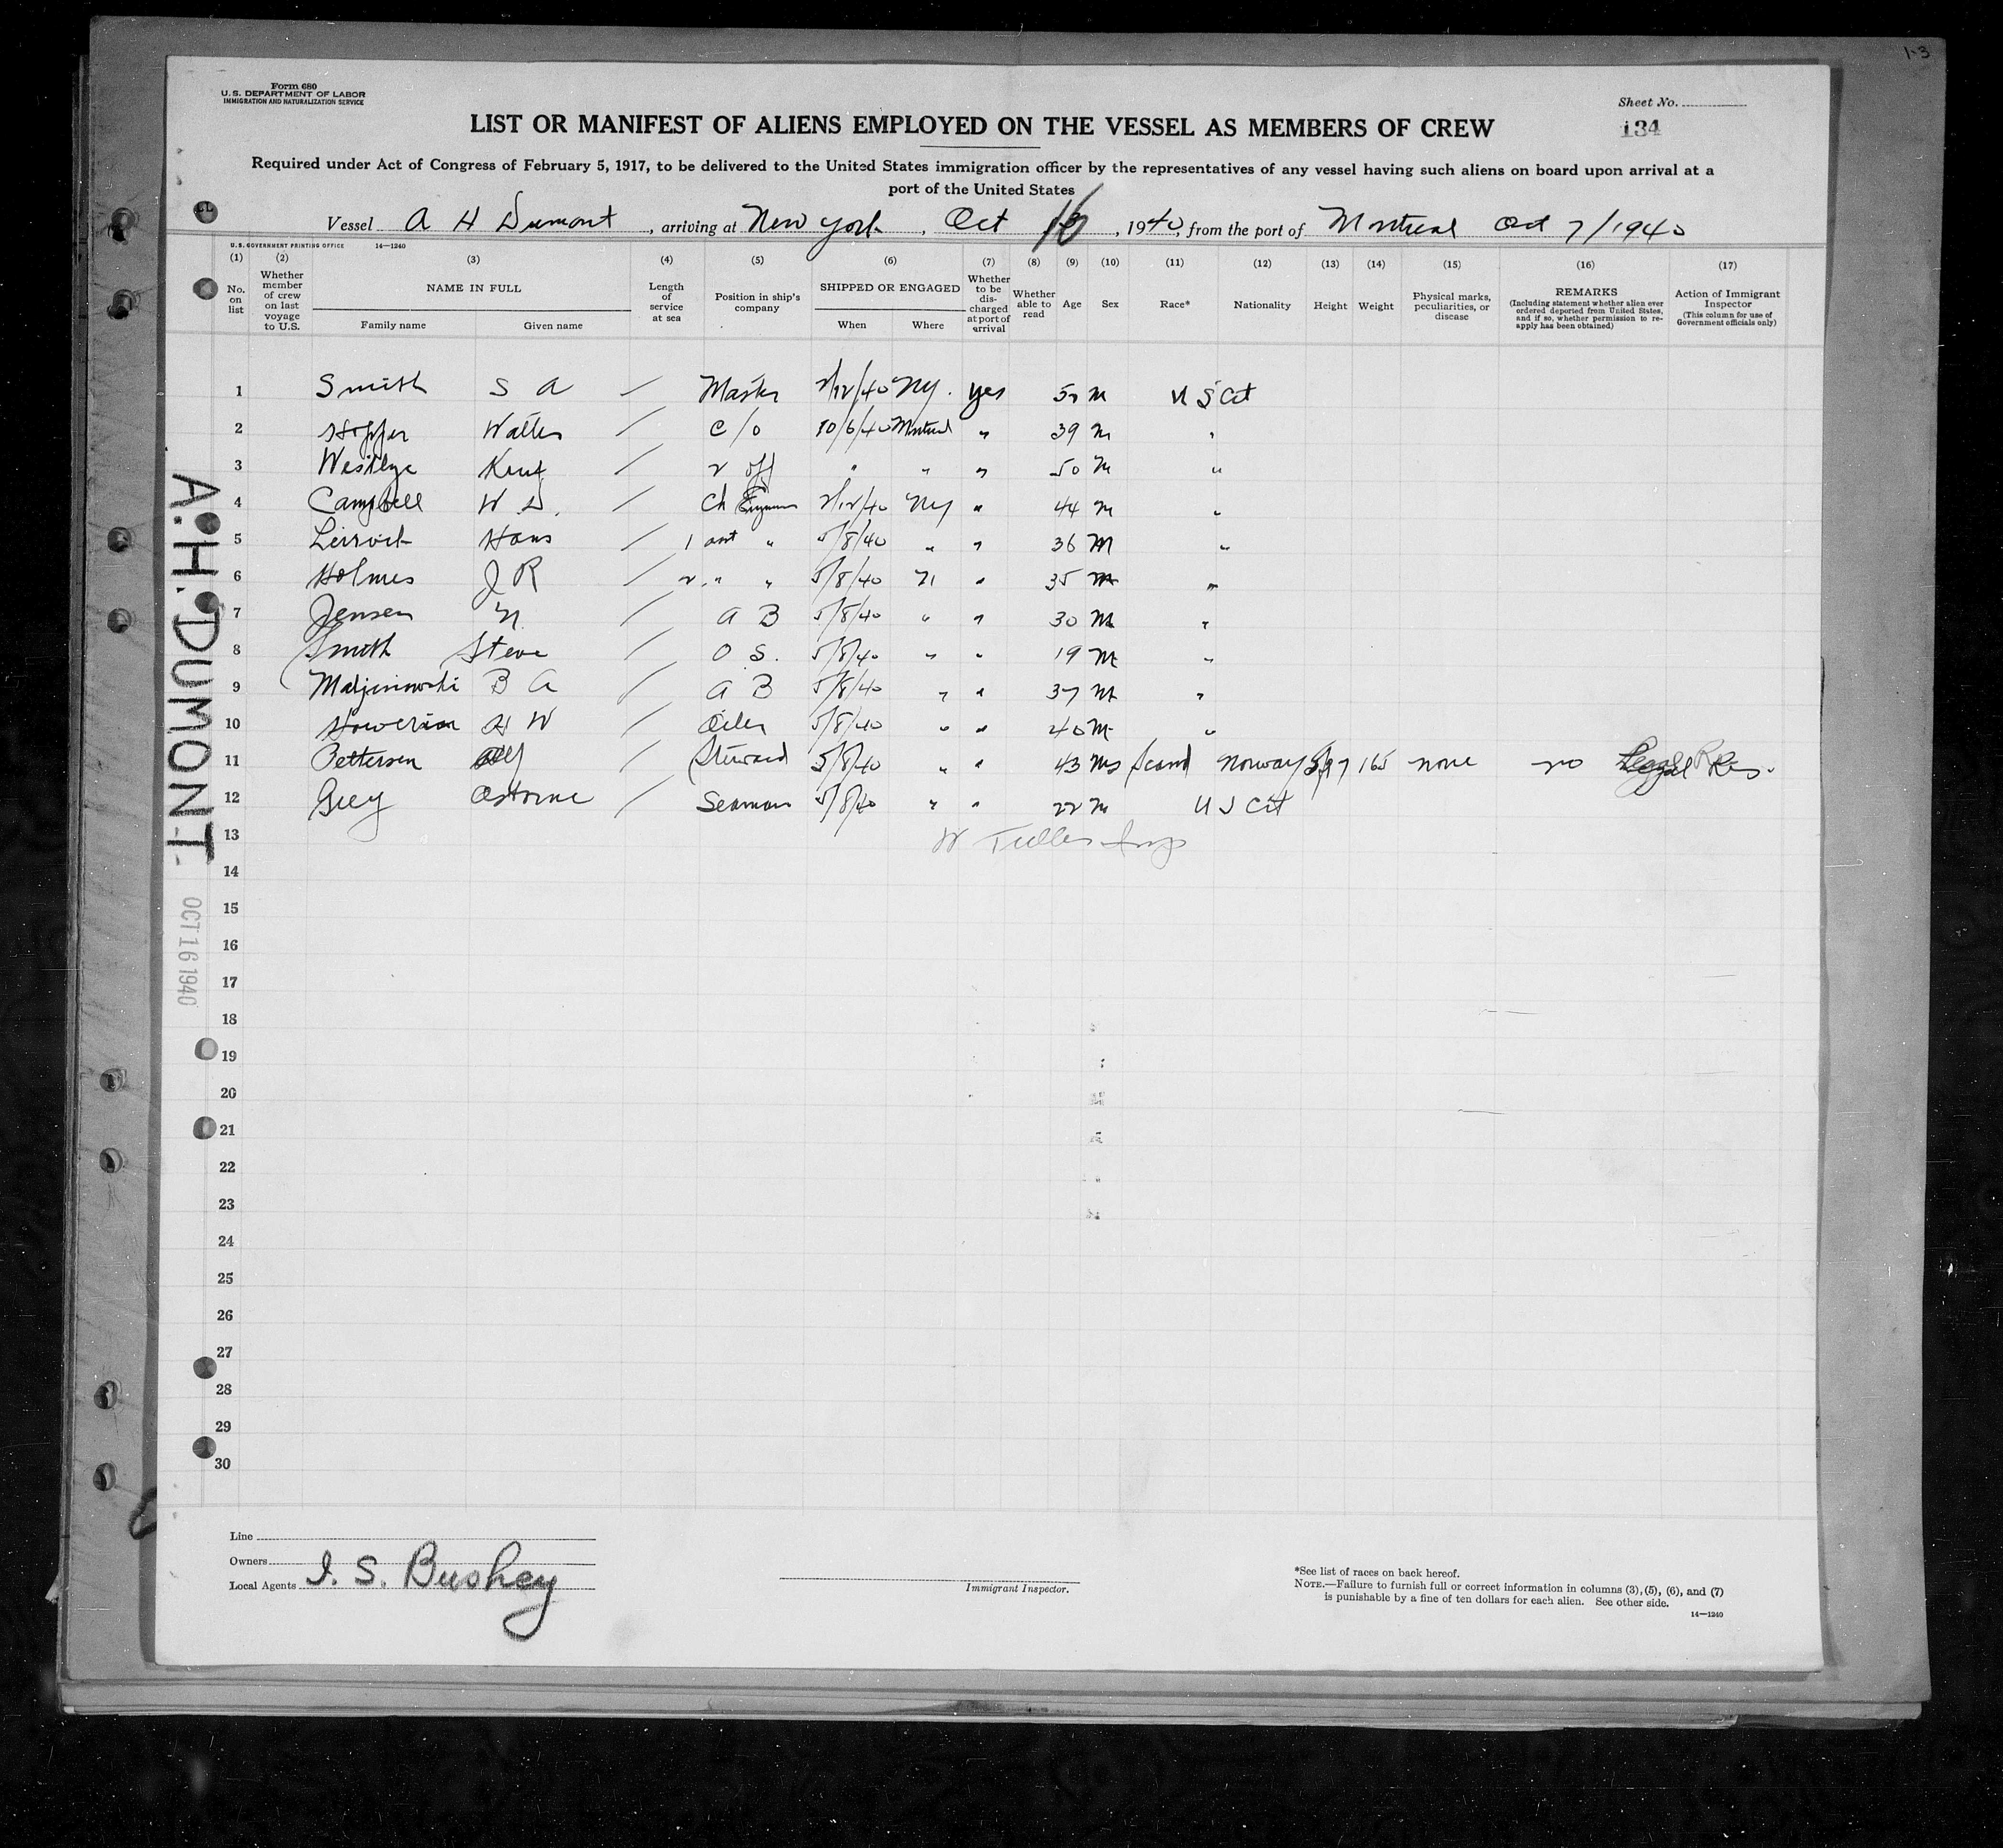 1-3
Form 680
U.S. DEPARTMENT OF LABOR
IMMIGRATION AND NATURALIZATION SERVICE
Sheet No.
134
LIST OR MANIFEST OF ALIENS EMPLOYED ON THE VESSEL AS MEMBERS OF CREW
Required under Act of Congress of February 5, 1917, to be delivered to the United States immigration officer by the representatives of any vessel having such aliens on board upon arrival at a
port of the United States
Vessel A H Dumont, arriving at New York, Oct 16, 1940, from the port of Montreal Oct 7/1940
U.S. GOVERNMENT PRINTING OFFICE 14—1240
(1) (2) (3) (4) (5) (6) (7) (8) (9) (10) (11) (12) (13) (14) (15) (16) (17)
No. on list
Whether member of crew on last voyage to U.S.
NAME IN FULL
Family name Given name
Length of service at sea
Position in ship's company
SHIPPED OR ENGAGED
When Where
Whether to be discharged at port of arrival
Whether able to read
Age
Sex
Race*
Nationality
Height
Weight
Physical marks, peculiarities, or disease
REMARKS
(Including statement whether alien ever ordered deported from United States, and if so, whether permission to reapply has been obtained)
Action of Immigrant Inspector
(This column for use of Government officials only)
1 Smith S A / Master 2/12/40 NY. yes M U S Cit
2 Hopper Walter / C/O 10/6/40 Montreal " 39 M "
3 Knut / 2 off " " " 50 M "
4 Campbell W D. / Ch 2/12/40 NY " 44 M "
5 Hans / 1 asst " 5/8/40 " " 36 M "
6 Holmes J R / 2 " " 5/8/40 " 35 M "
7 Jensen N / A B 5/8/40 " " 30 M "
8 Smith Steve / O S. 5/8/40 " " 19 M "
9 B A / A B 5/8/40 " " 37 M "
10 H W / Oiler 5/8/40 " " 40 M "
11 Pettersen Alf / Steward 5/8/40 " " 43 M Scand Norway 165 none no Legal Res.
12 Grey Osborne / Seaman 5/8/40 " " 22 M U S Cit
13
14
15
16
17
18
19
20
21
22
23
24
25
26
27
28
29
30
A.H. DUMONT.
OCT 16 1940
Line
Owners
Local Agents I. S. Bushey
Immigrant Inspector.
*See list of races on back hereof.
NOTE.—Failure to furnish full or correct information in columns (3), (5), (6), and (7)
is punishable by a fine of ten dollars for each alien. See other side.
14—1240